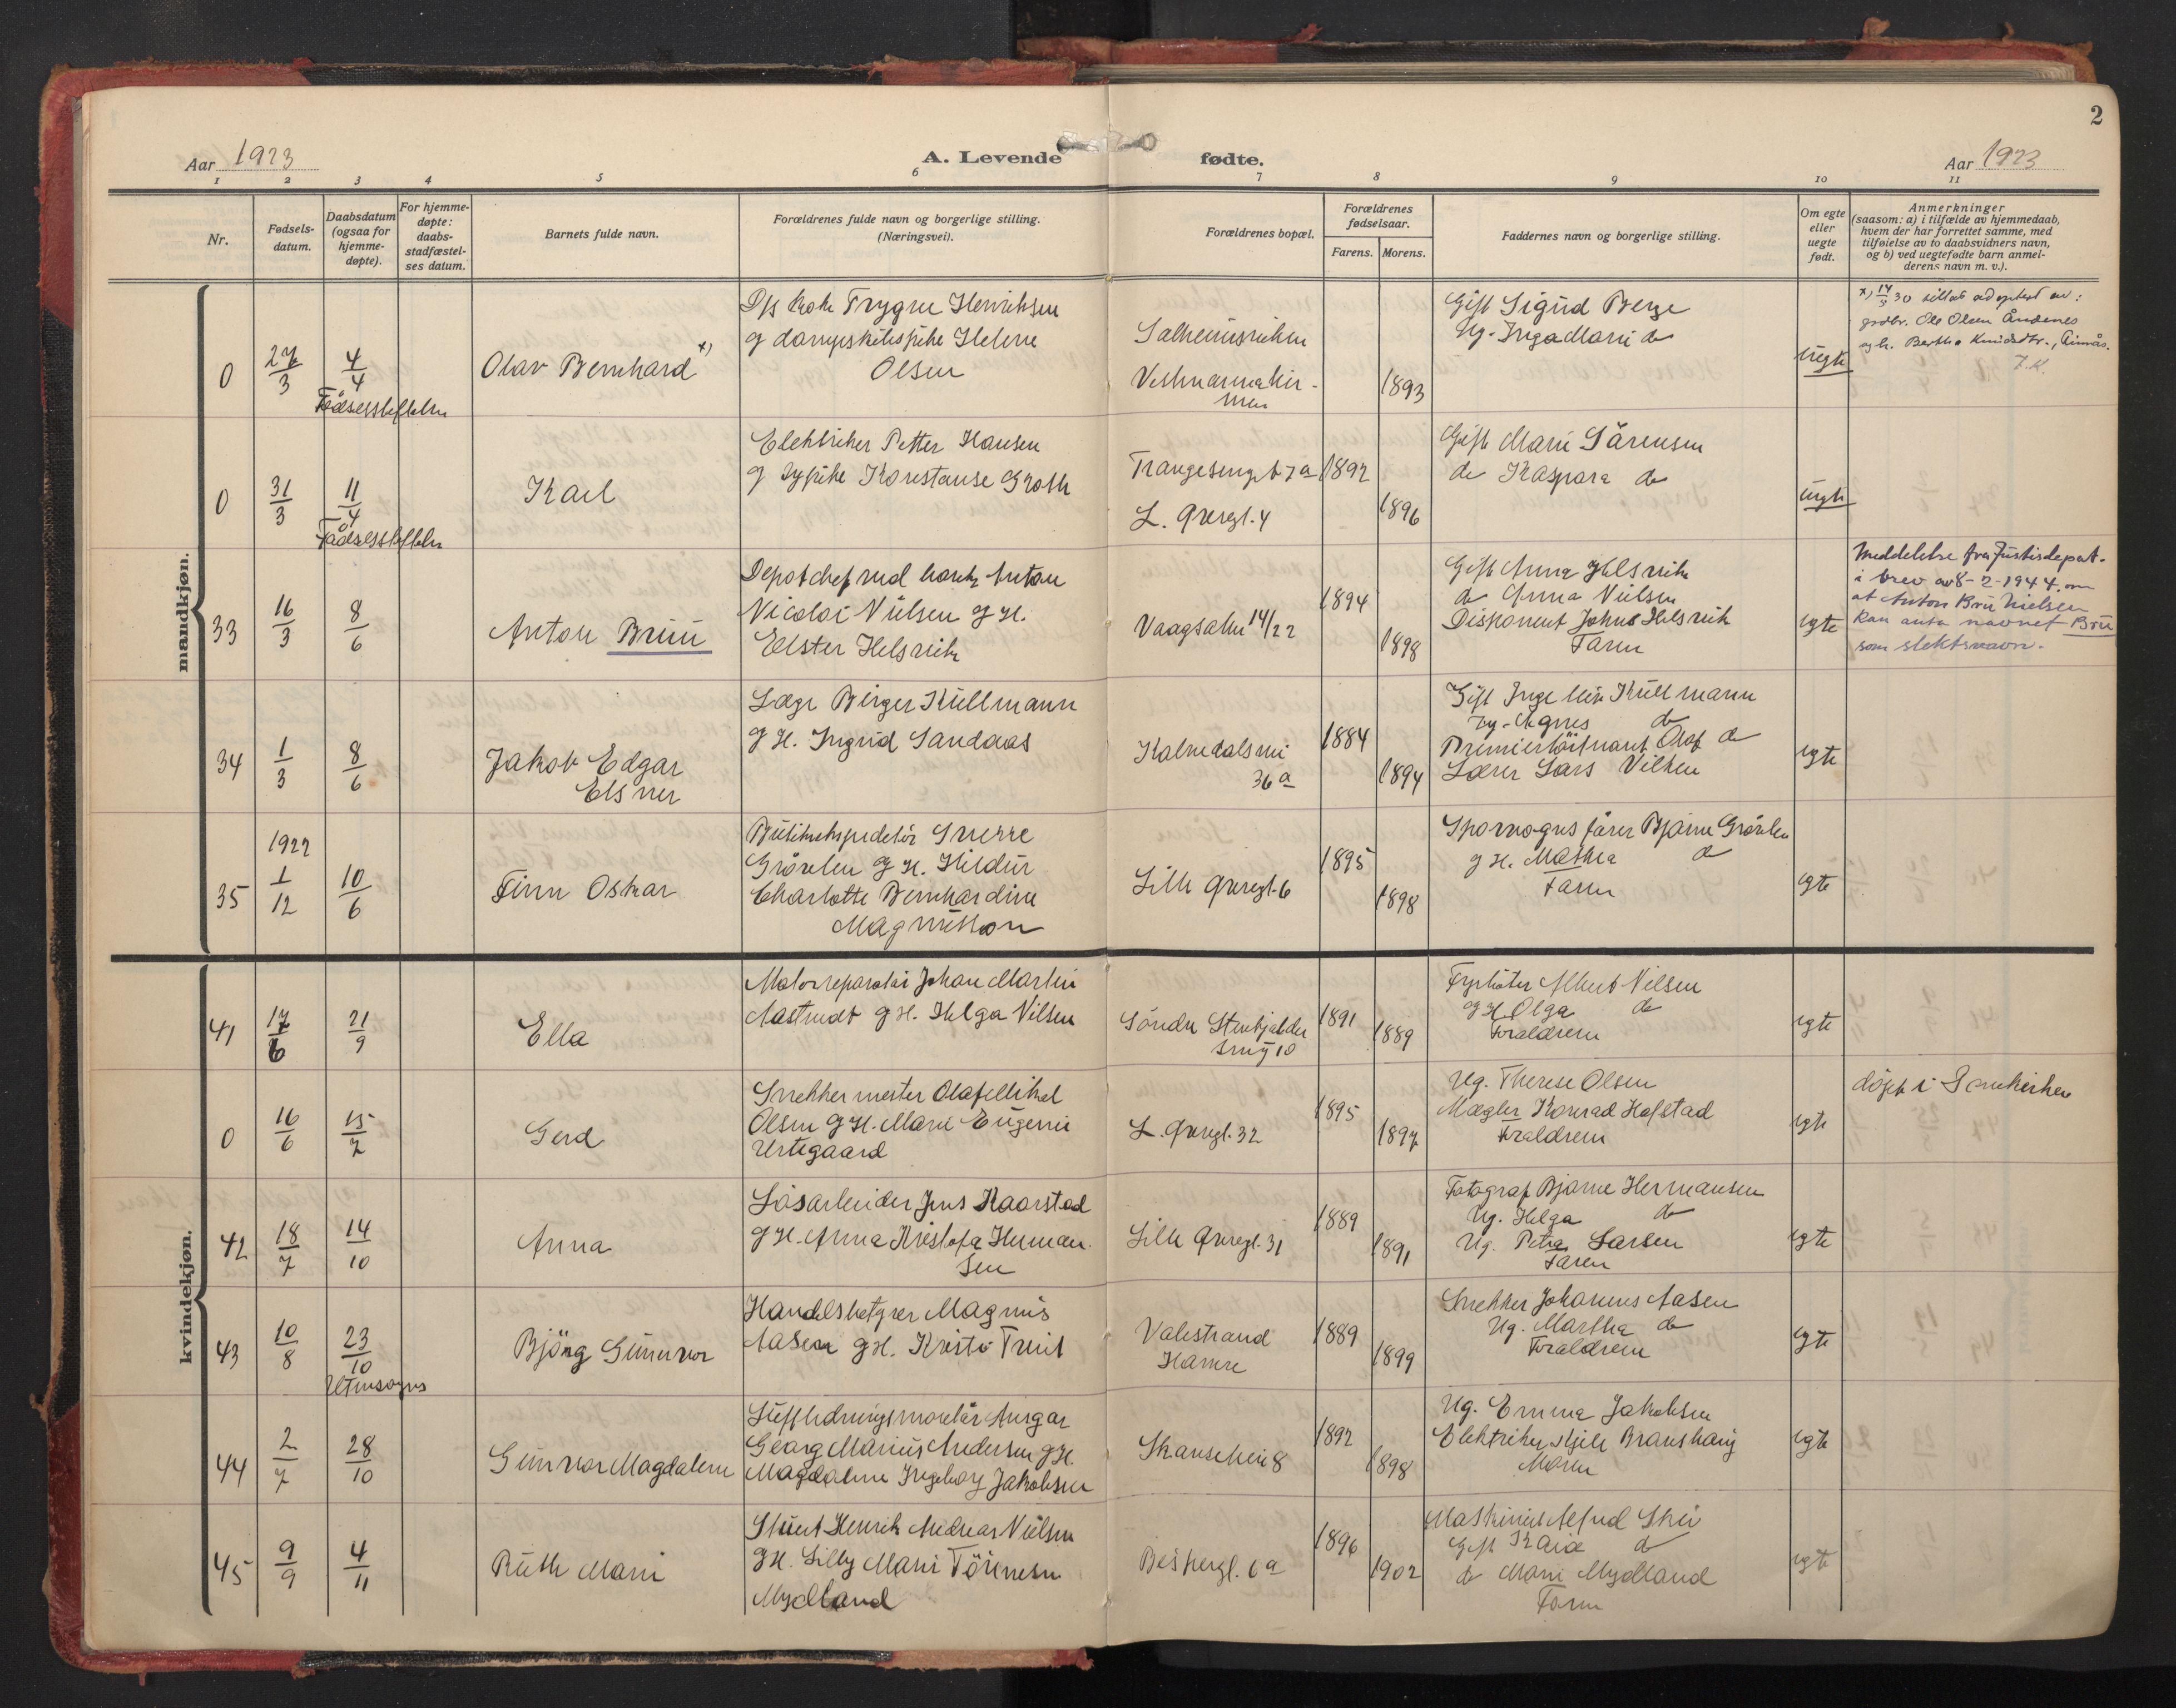 2
Aar 1923
A. Levende fødte.
Aar 1923
1 2 3 4 5 6 7 8 9 10 11
Nr.
Fødsels-
datum.
Daabsdatum
(ogsaa for
hjemme-
døpte).
For hjemme-
døpte:
daabs-
stadfæstel-
ses datum.
Barnets fulde navn.
Forældrenes fulde navn og borgerlige stilling.
(Næringsvei).
Forældrenes bopæl.
Forældrenes
fødselsaar.
Farens. Morens.
Faddernes navn og borgerlige stilling.
Om egte
eller
uegte
født.
Anmerkninger
(saasom: a) i tilfælde av hjemmedaab,
hvem der har forrettet samme, med
tilføielse av to daabsvidners navn,
og b) ved uegtefødte barn anmel-
derens navn m. v.).
mandkjøn.
0
27/3
4/4
Fødselsstiftelsen
Olav Bernhard x)
Dps kok Trygve Henriksen
og dampskibspike Helene
Olsen
Salheimsveien
1893
Gift Sigrid Berge
Ug. Inga Marie do
uegte
x) 14/5 30 tillat adoptert av:
grdbr. Ole Olsen Åndenes
og h. Bertha Knudsdtr.,
0
31/3
11/4
Fødselsstiftelsen
Karl
Elektriker Petter Hansen
og sypike Konstanse Groth
1892
L. Øvregt. 4
1896
Gift Marie Sörensen
do Kaspara do
uegte
33
16/3
8/6
Anton Bruu
Depotchef ved havn Anton
Nicolai Nielsen g H.
Elster Helsvik
Vaagsalm 14/22
1894
1898
Gift Anna Helsvik
do Anna Nielsen
Disponent Johns Helsvik
Faren
egte
Meddelelse fra Justisdepat.
i brev av 8-2-1944 om
at Anton Bru Nielsen
kan anta navnet Bru
som slektsnavn.
34
1/3
8/6
Jakob Edgar
Elsner
Læge Birger Kullmann
g H. Ingrid Sandaas
Kalvedalsvei
36 a
1884
1894
Gift Kullmann
Ug. Agnes do
Premierlöitnant Olaf do
Lærer Lars Vilken
egte
35
1922
1/12
10/6
Finn Oskar
Sverre
Grövlen g H. Hildur
Charlotte Bernhardine
Magnusson
Lille Øvregt. 6
1895
1898
Sporvognsfører Bjarne Grövlen
g H. Mathea do
Faren
egte
kvindekjøn.
41
17/6
21/9
Ella
Motorreparatör Johan Martin
Aastvedt g H. Helga Nilsen
Söndre Stenkjelder
smug 10
1891
1889
Fyrböter Albert Nilsen
g H. Olga do
Forældrene
egte
0
16/6
15/7
Gerd
Snekkermester Olaf Mikal
Olsen g H. Marie Eugenie
Urtegaard
L. Øvregt. 32
1895
1897
Ug. Therese Olsen
Mægler Konrad Hofstad
Forældrene
egte
döpt i Domkirken
42
18/7
14/10
Anna
Lösarbeider Jens Kaarstad
g H. Anna Kristofa Herman-
sen
Lille Øvregt. 31
1889
1891
Fotograf Bjarne Hermansen
Ug. Helga do
Ug. Petra Larsen
Faren
egte
43
10/8
23/10
Utensogns
Bjørg Gunnvor
Handelsbetjener Magnus
Aasen g H. Kristi Tveit
Valestrand
Hamre
1889
1899
Snekker Johannes Aasen
Ug. Martha do
Forældrene
egte
44
2/7
28/10
Gunvor Magdalene
Luftledningsmontör Ansgar
Georg Marius Andersen g H.
Magdalene Ingeborg Jakobsen
Skansevei 8
1892
1898
Ug. Emma Jakobsen
Elektriker Kjell
Moren
egte
45
9/9
4/11
Ruth Marie
Stuert Henrik Andreas Nielsen
g H. Lilly Marie Tönnesen
Mydland
Bispegt. 6 a
1896
1902
Maskinist Alfred Skei
Gift Kaia do
do Marie Mydland
Faren
egte